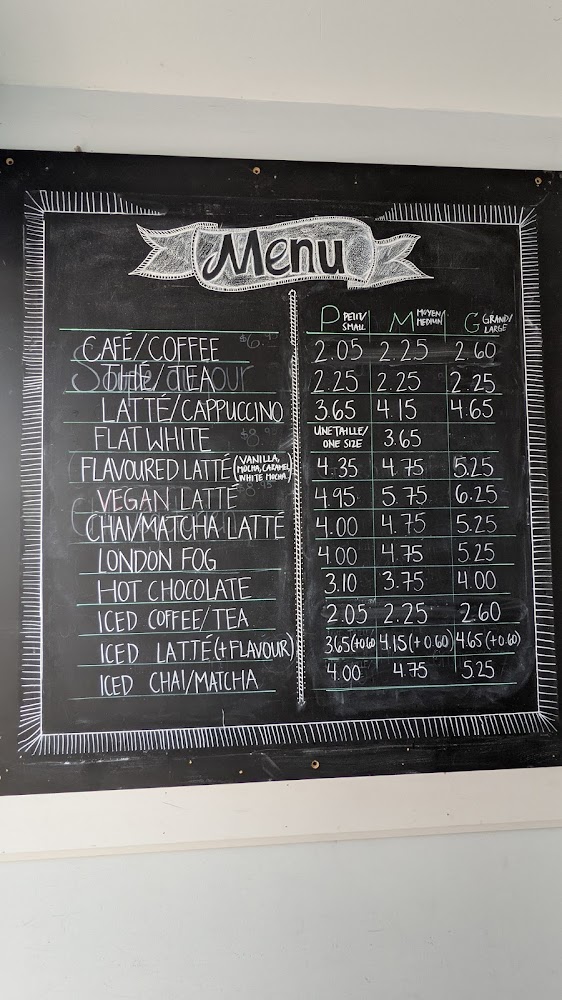 Menu
P PETIT/SMALL M MOYEN/MEDIUM G GRAND/LARGE
CAFÉ/COFFEE 2.05 2.25 2.60
THÉ/TEA 2.25 2.25 2.25
LATTÉ/CAPPUCCINO 3.65 4.15 4.65
FLAT WHITE UNE TAILLE/ONE SIZE 3.65
FLAVOURED LATTÉ (VANILLA, MOCHA, CARAMEL, WHITE MOCHA) 4.35 4.75 5.25
VEGAN LATTÉ 4.95 5.75 6.25
CHAI/MATCHA LATTÉ 4.00 4.75 5.25
LONDON FOG 4.00 4.75 5.25
HOT CHOCOLATE 3.10 3.75 4.00
ICED COFFEE/TEA 2.05 2.25 2.60
ICED LATTÉ (+FLAVOUR) 3.65 (+0.60) 4.15 (+0.60) 4.65 (+0.60)
ICED CHAI/MATCHA 4.00 4.75 5.25